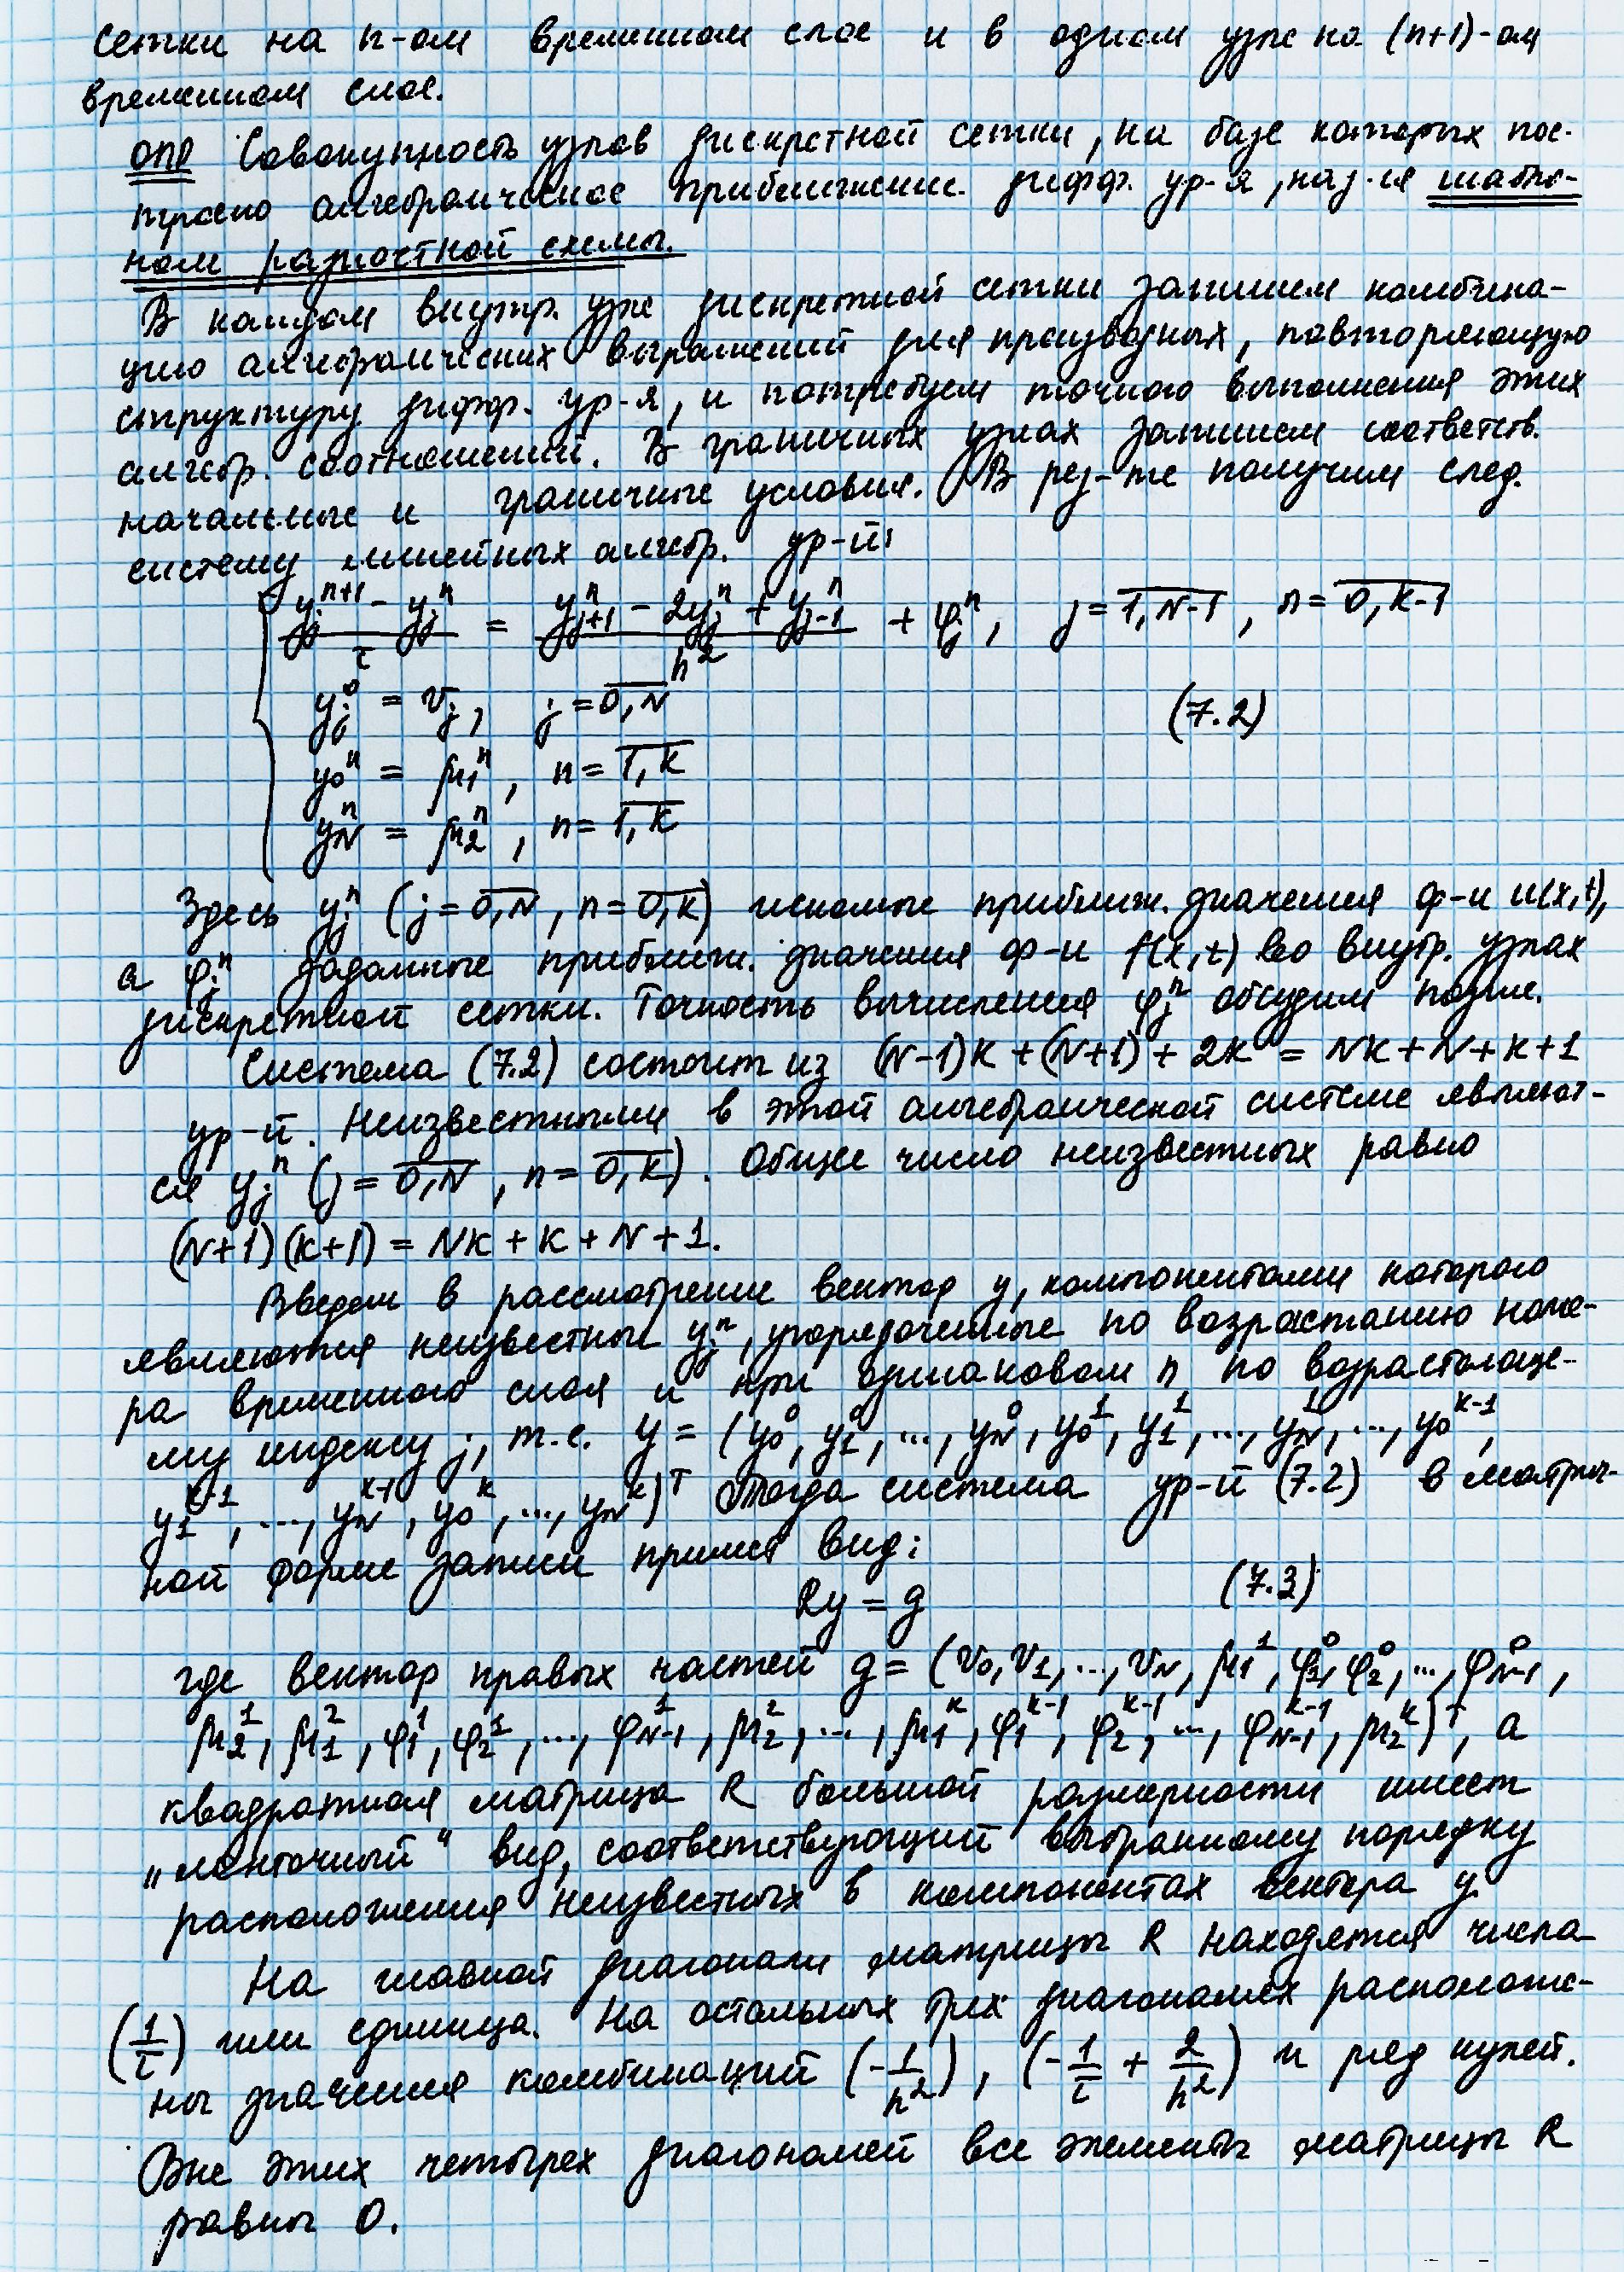 сетки на n-ом временном слое и в одном узле на (n+1)-ом
временном слое.
опр Совокупность узлов дискретной сетки, на базе которых пос-
троено алгебраическое приближение дифф. ур-я, наз-ся шабло-
ном разностной схемы.
В каждом внутр. узле дискретной сетки запишем комбина-
цию алгебраических выражений для производных, повторяющую
структуру дифф. ур-я, и потребуем точного выполнения этих
алгебр. соотношений. В граничных узлах запишем соответств.
начальные и граничные условия. В рез-те получим след.
систему линейных алгебр. ур-й:
(y_j^{n+1} - y_j^n)/τ = (y_{j+1}^n - 2y_j^n + y_{j-1}^n)/h^2 + φ_j^n, j = \overline{1,N-1}, n = \overline{0,K-1}
y_j^0 = v_j, j = \overline{0,N} (7.2)
y_0^n = μ_1^n, n = \overline{1,K}
y_N^n = μ_2^n, n = \overline{1,K}
Здесь y_j^n (j = \overline{0,N}, n = \overline{0,K}) искомые приближ. значения ф-и u(x,t),
а φ_j^n заданные приближ. значения ф-и f(x,t) во внутр. узлах
дискретной сетки. Точность вычисления φ_j^n обсудим позже.
Система (7.2) состоит из (N-1)K + (N+1) + 2K = NK + N + K + 1
ур-й. Неизвестными в этой алгебраической системе являют-
ся y_j^n (j = \overline{0,N}, n = \overline{0,K}). Общее число неизвестных равно
(N+1)(K+1) = NK + K + N + 1.
Введем в рассмотрение вектор y, компонентами которого
являются неизвестные y_j^n, упорядоченные по возрастанию номе-
ра временного слоя и при одинаковом n по возрастающе-
му индексу j, т.е. y = (y_0^0, y_1^0, ..., y_N^0, y_0^1, y_1^1, ..., y_N^1, ..., y_0^{K-1},
y_1^{K-1}, ..., y_N^{K-1}, y_0^K, ..., y_N^K)^T Тогда система ур-й (7.2) в матрич-
ной форме записи примет вид:
Ry = g (7.3)
где вектор правых частей g = (v_0, v_1, ..., v_N, μ_1^1, φ_1^0, φ_2^0, ..., φ_{N-1}^0,
μ_2^1, μ_1^2, φ_1^1, φ_2^1, ..., φ_{N-1}^1, μ_2^2, ..., μ_1^K, φ_1^{K-1}, φ_2^{K-1}, ..., φ_{N-1}^{K-1}, μ_2^K)^T, а
квадратная матрица R большой размерности имеет
„ленточный“ вид, соответствующий выбранному порядку
расположения неизвестных в компонентах вектора y.
На главной диагонали матрицы R находятся числа
(1/τ) или единица. На остальных трех диагоналях расположе-
ны значения комбинаций (-1/h^2), (-1/τ + 2/h^2) и ряд нулей.
Вне этих четырех диагоналей все элементы матрицы R
равны 0.